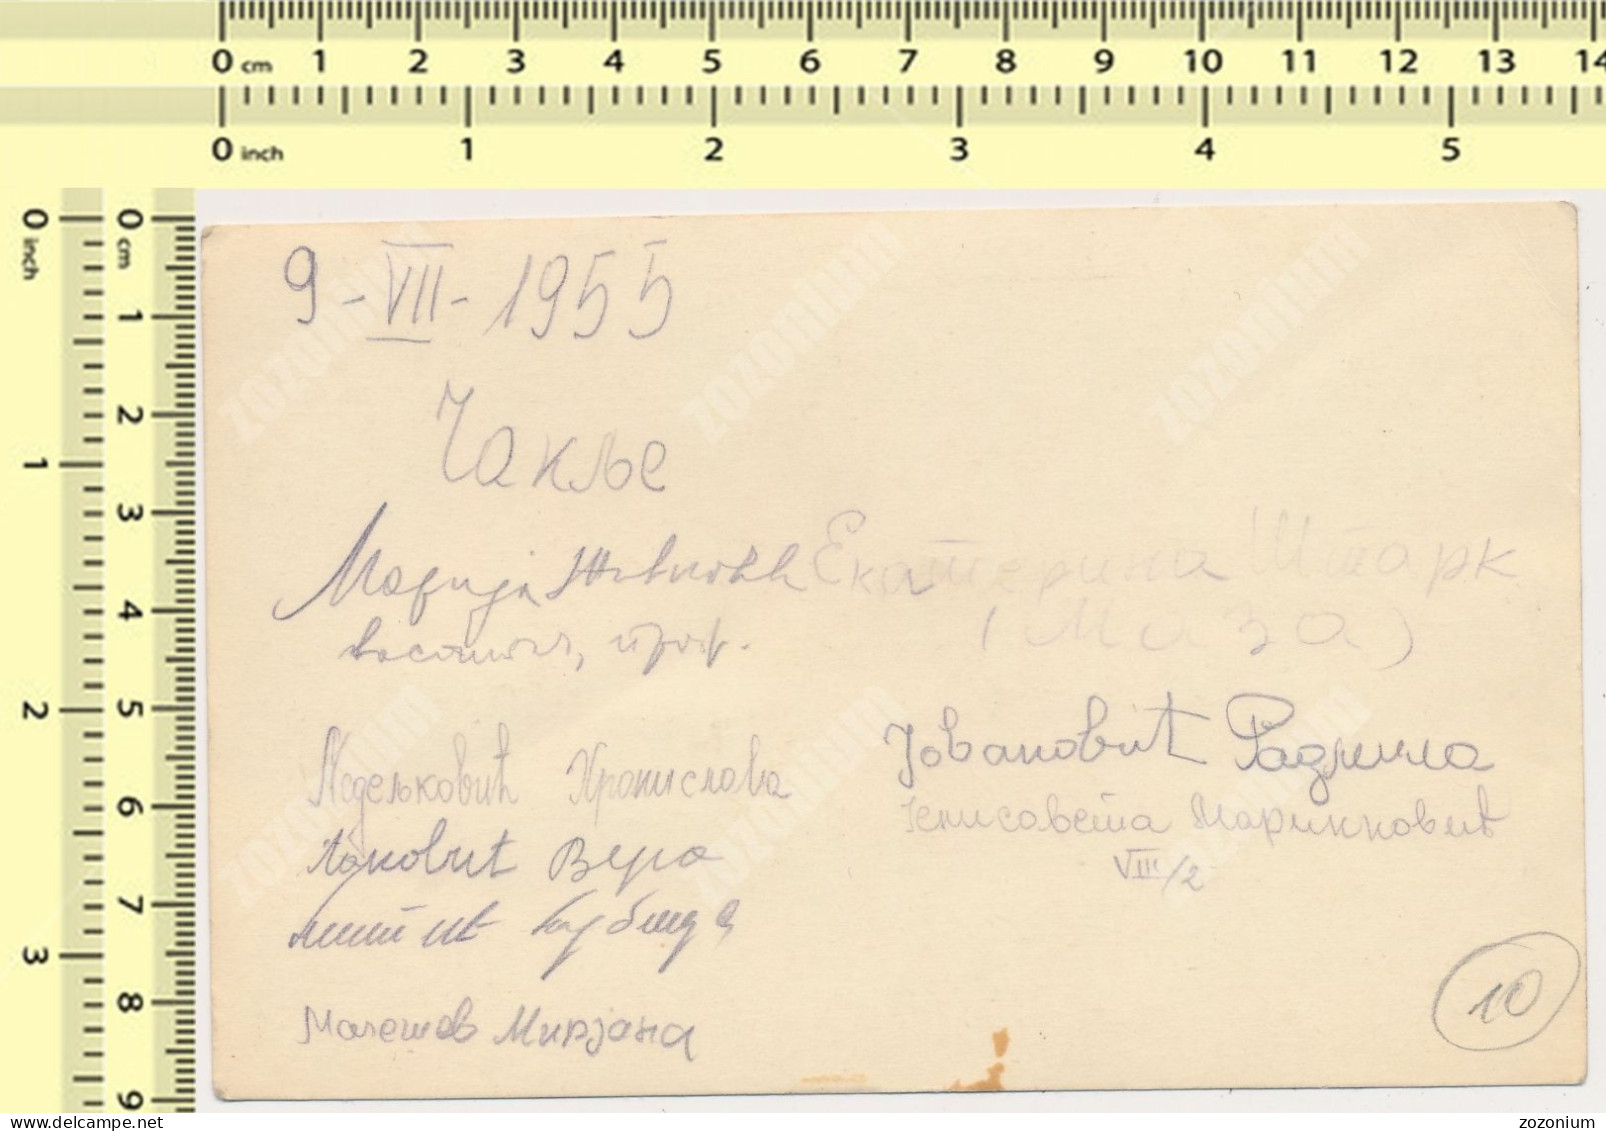 0 cm 1 2 3 4 5 6 7 8 9 10 11 12 13 14
0 inch 1 2 3 4 5
0 inch 1 2 3
0 cm 1 2 3 4 5 6 7 8 9
9-VII-1955
Чакље
Марија Живковић
проф.
Екатерина Штарк
(Маза)
Недељковић Хранислава
Јовановић Радмила
Јелисавета Маринковић
VIII/2
Ђоковић Вера
Малешев Мирјана
10
ZOZONIUM
ZOZONIUM
ZOZONIUM
ZOZONIUM
ZOZONIUM
ZOZONIUM
delcampe.net
zozonium